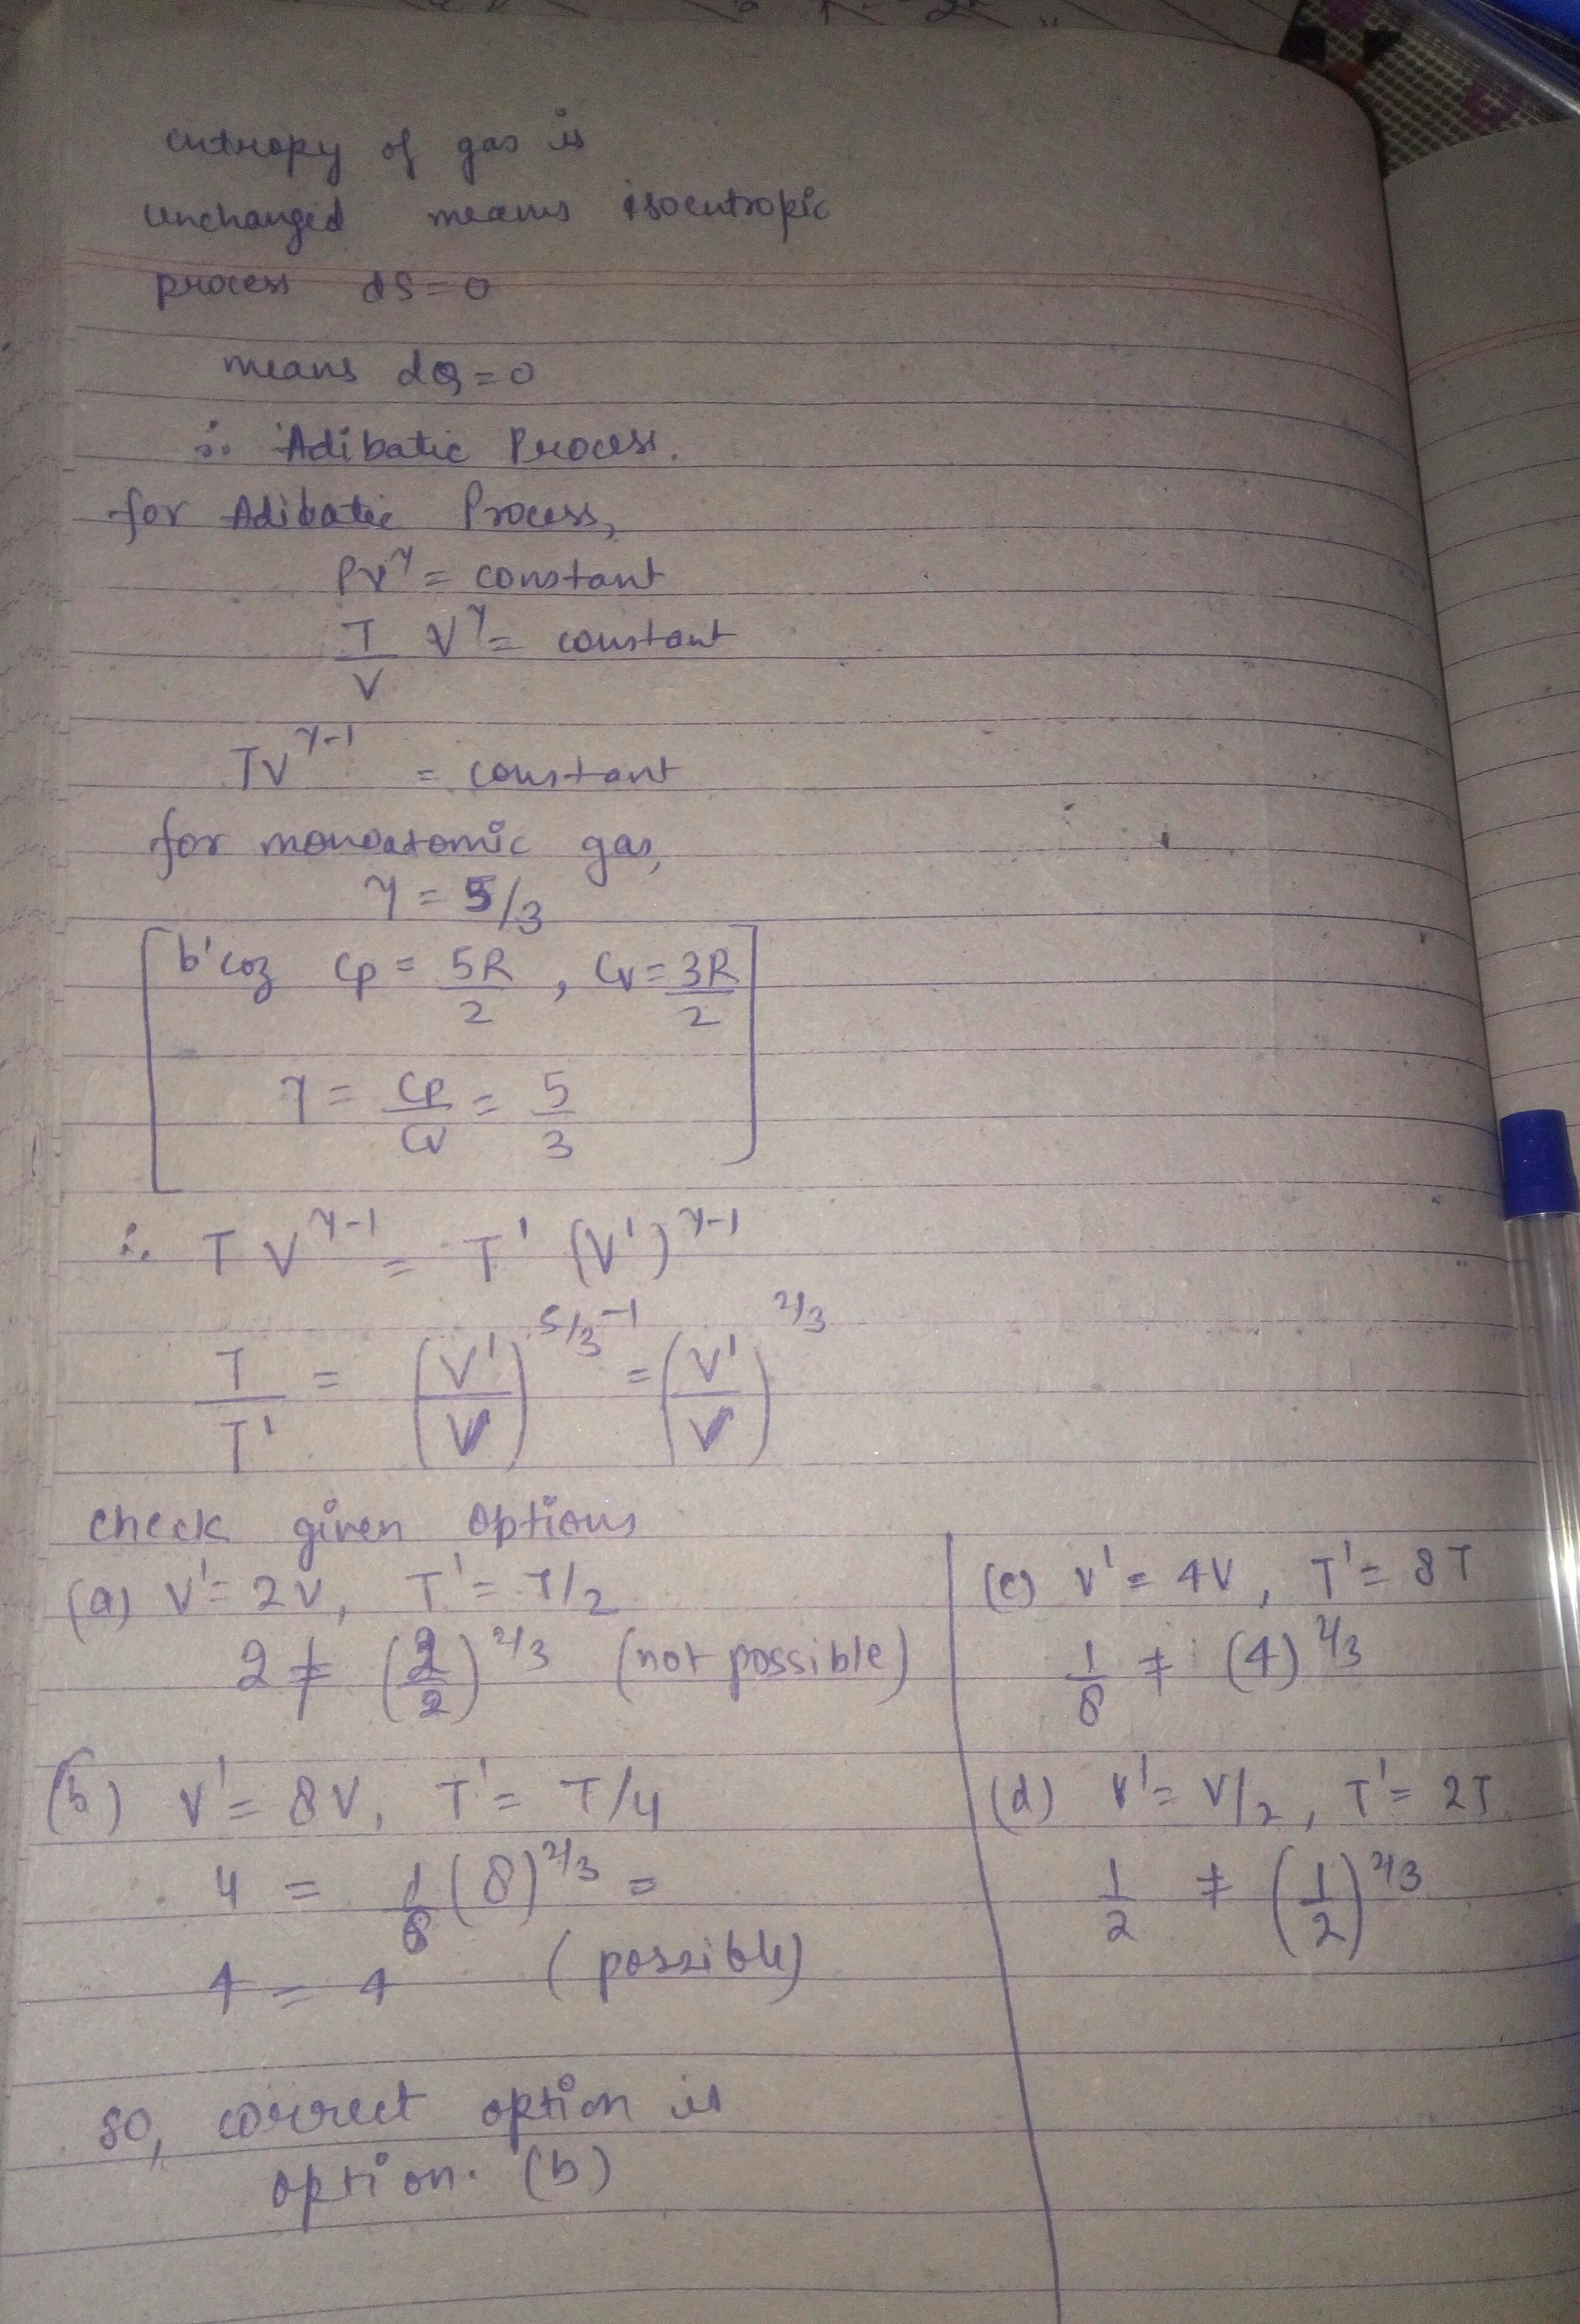 entropy of gas is
unchanged means isoentropic
process dS=0
means dQ=0
∴ Adibatic Process.
for Adibatic Process,
PV^γ = constant
T/V V^γ = constant
TV^γ-1 = constant
for monoatomic gas,
γ = 5/3
b'coz Cp = 5R/2, Cv = 3R/2
γ = Cp/Cv = 5/3
∴ T V^γ-1 = T' (V')^γ-1
T/T' = (V'/V)^5/3-1 = (V'/V)^2/3
check given options
(a) V'= 2V, T'= T/2
2 ≠ (2/2)^2/3 (not possible)
(b) V'= 8V, T'= T/4
4 = (8)^2/3 =
4 = 4 (possible)
(c) V'= 4V, T'= 8T
1/8 ≠ (4)^2/3
(d) V'= V/2, T'= 2T
1/2 ≠ (1/2)^2/3
so, correct option is
option. (b)